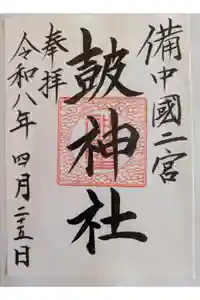 備中國二宮
皷神社
奉拝
令和八年 四月二十五日